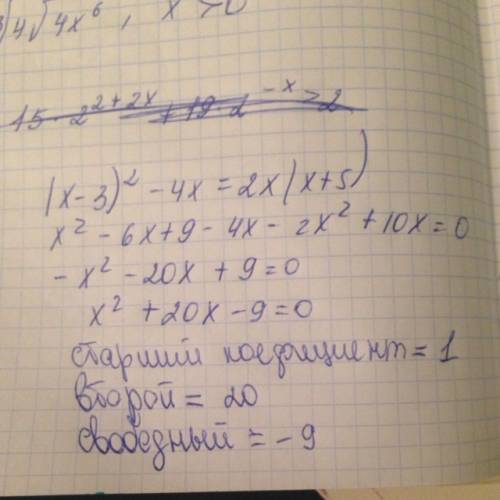 ∛4√4x⁶ , x > 0
15 · 2²⁺²ˣ + 19 · 2⁻ˣ > 2
(x-3)² - 4x = 2x(x+5)
x² - 6x + 9 - 4x - 2x² + 10x = 0
- x² - 20x + 9 = 0
x² + 20x - 9 = 0
старший коефициент = 1
второй = 20
свободный = - 9